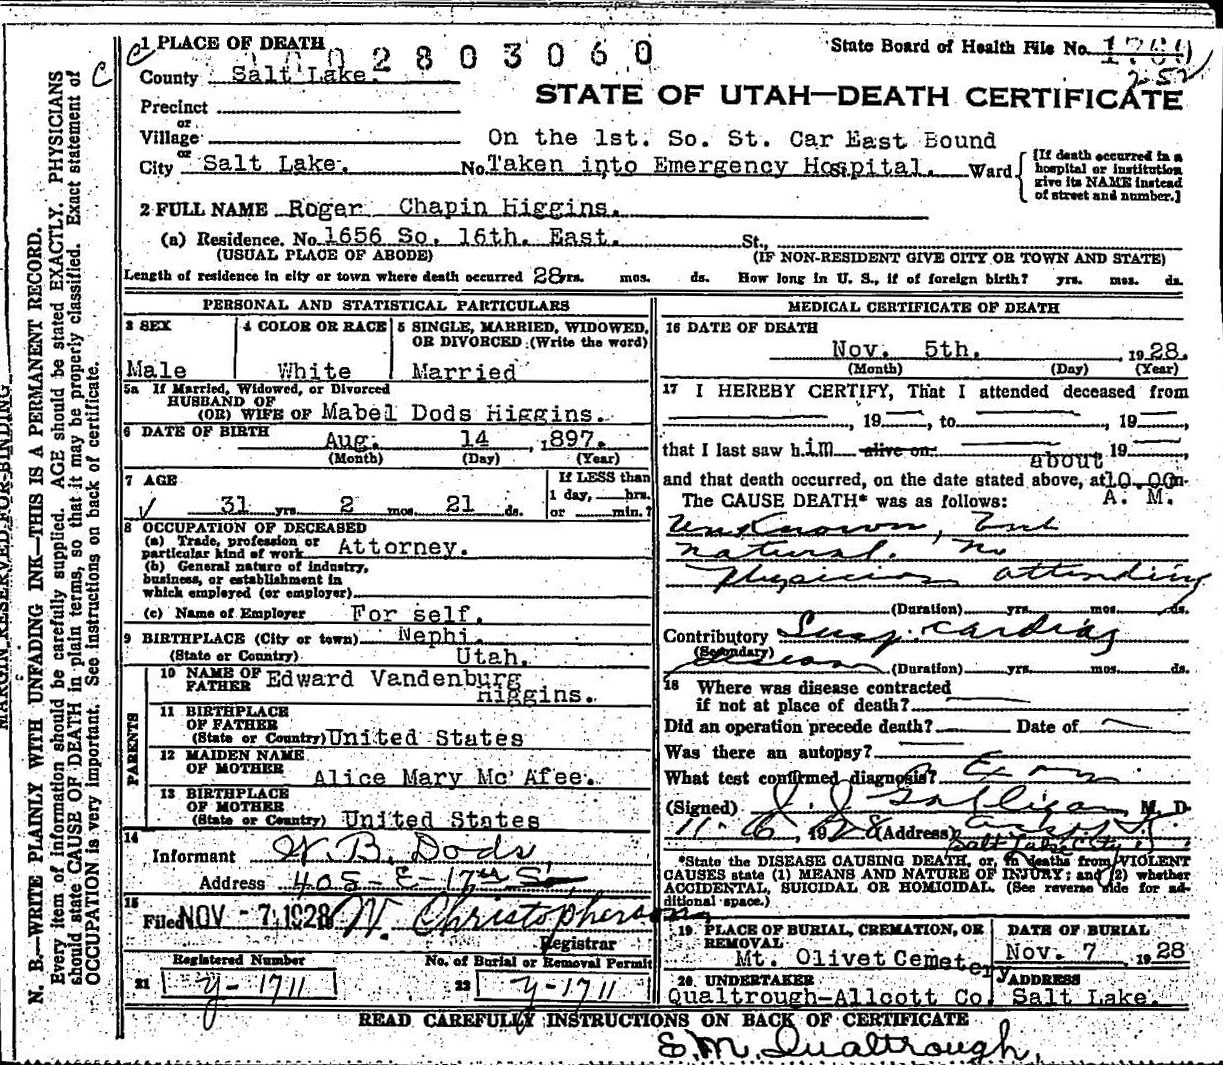 1 PLACE OF DEATH
0002803060
State Board of Health File No.
252
County Salt Lake.
STATE OF UTAH—DEATH CERTIFICATE
Precinct
or
Village
On the 1st. So. St. Car East Bound
or
City Salt Lake. No. Taken into Emergency Hospital. Ward
[If death occurred in a hospital or institution give its NAME instead of street and number.]
2 FULL NAME Roger Chapin Higgins.
(a) Residence. No. 1656 So. 16th. East. St.,
(USUAL PLACE OF ABODE) (IF NON-RESIDENT GIVE CITY OR TOWN AND STATE)
Length of residence in city or town where death occurred 28 yrs. mos. ds. How long in U. S., if of foreign birth? yrs. mos. ds.
PERSONAL AND STATISTICAL PARTICULARS
3 SEX
Male
4 COLOR OR RACE
White
5 SINGLE, MARRIED, WIDOWED,
OR DIVORCED (Write the word)
Married
5a If Married, Widowed, or Divorced
HUSBAND OF
(OR) WIFE OF Mabel Dods Higgins.
6 DATE OF BIRTH
Aug. 14 ,1897.
(Month) (Day) (Year)
7 AGE
If LESS than
1 day, hrs.
or min.?
31 yrs. 2 mos. 21 ds.
8 OCCUPATION OF DECEASED
(a) Trade, profession or
particular kind of work Attorney.
(b) General nature of industry,
business, or establishment in
which employed (or employer)
(c) Name of Employer For self.
9 BIRTHPLACE (City or town) Nephi.
(State or Country) Utah.
PARENTS
10 NAME OF
FATHER Edward Vandenburg
Higgins.
11 BIRTHPLACE
OF FATHER
(State or Country) United States
12 MAIDEN NAME
OF MOTHER Alice Mary Mc'Afee.
13 BIRTHPLACE
OF MOTHER
(State or Country) United States
14
Informant W. B. Dods,
Address 405-E-17th So
15
Filed NOV - 7 1928 W. Christopherson
Registrar
Registered Number No. of Burial or Removal Permit
21 y-1711 22 y-1711
MEDICAL CERTIFICATE OF DEATH
16 DATE OF DEATH
Nov. 5th. , 1928.
(Month) (Day) (Year)
17 I HEREBY CERTIFY, That I attended deceased from
, 19 , to , 19 ,
that I last saw him alive on 19 ,
about
and that death occurred, on the date stated above, at 10.00 m.
A. M.
The CAUSE DEATH* was as follows:
Unknown, but
natural. No
Physician attending
(Duration) yrs. mos. ds.
Contributory Susp. cardiac
(Secondary)
disease (Duration) yrs. mos. ds.
18 Where was disease contracted
if not at place of death?
Did an operation precede death? Date of
Was there an autopsy?
What test confirmed diagnosis?
(Signed) J. J. Galligan M. D.
11-6, 1928 (Address)
Salt Lake City
*State the DISEASE CAUSING DEATH, or, in deaths from VIOLENT
CAUSES state (1) MEANS AND NATURE OF INJURY; and (2) whether
ACCIDENTAL, SUICIDAL OR HOMICIDAL. (See reverse side for ad-
ditional space.)
19 PLACE OF BURIAL, CREMATION, OR
REMOVAL
Mt. Olivet Cemetery
DATE OF BURIAL
Nov. 7 , 1928
20 UNDERTAKER
Qualtrough-Allcott Co.
ADDRESS
Salt Lake.
READ CAREFULLY INSTRUCTIONS ON BACK OF CERTIFICATE
E. M. Qualtrough,
MARGIN RESERVED FOR BINDING
N. B.—WRITE PLAINLY WITH UNFADING INK—THIS IS A PERMANENT RECORD.
Every item of information should be carefully supplied. AGE should be stated EXACTLY. PHYSICIANS
should state CAUSE OF DEATH in plain terms, so that it may be properly classified. Exact statement of
OCCUPATION is very important. See instructions on back of certificate.